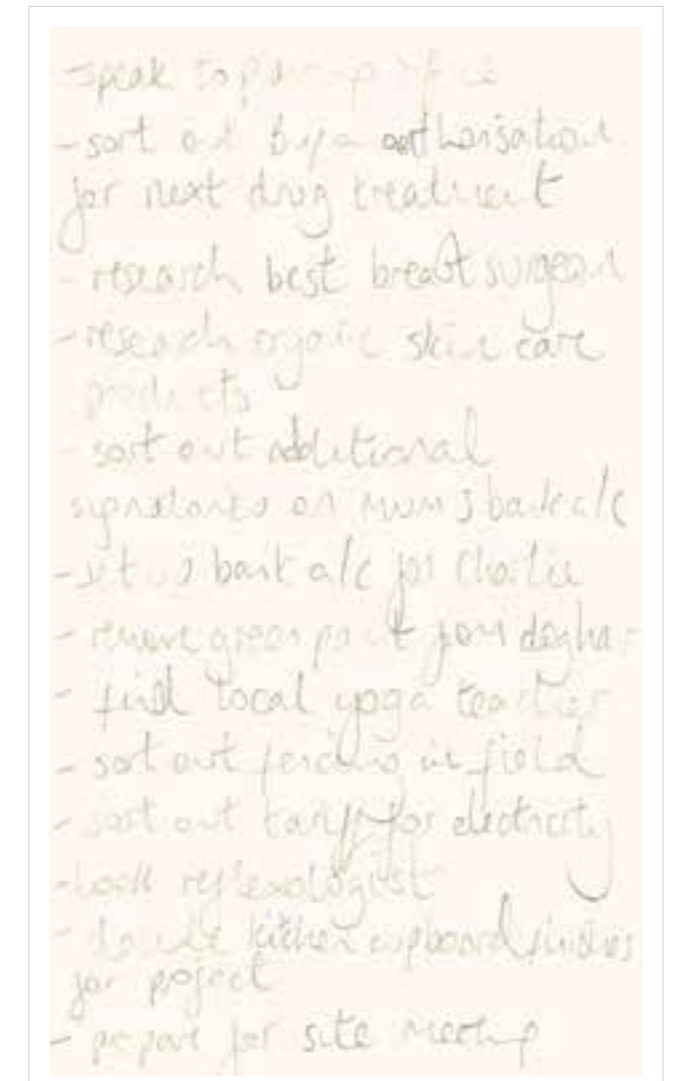 - speak to planning office
- sort out bupa authorisation
for next drug treatment
- research best breast surgeon
- research organic skin care
products
- sort out additional
signatories on mum's bank a/c
- set up bank a/c for Charlie
- remove green paint from
- find local yoga teacher
- sort out fencing in field
- sort out tariff for electricity
- book reflexologist
- kitchen cupboard finishes
for project
- prepare for site meeting